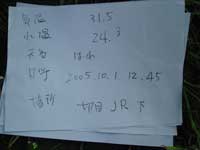 気温 31.5
水温 24.3
天気 はれ
日時 2005.10.1 12.45
場所 切目 JR 下